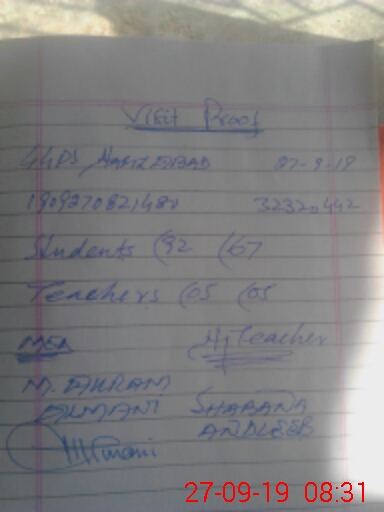 Visit Proof
GGPS NAMZABAD 27-9-19
1909270821480 32320442
Students (92 (67
Teachers (05 (05
MEA H/Teacher
M. AKRAM
ALMANI SHABANA
ANDLEEB
27-09-19 08:31